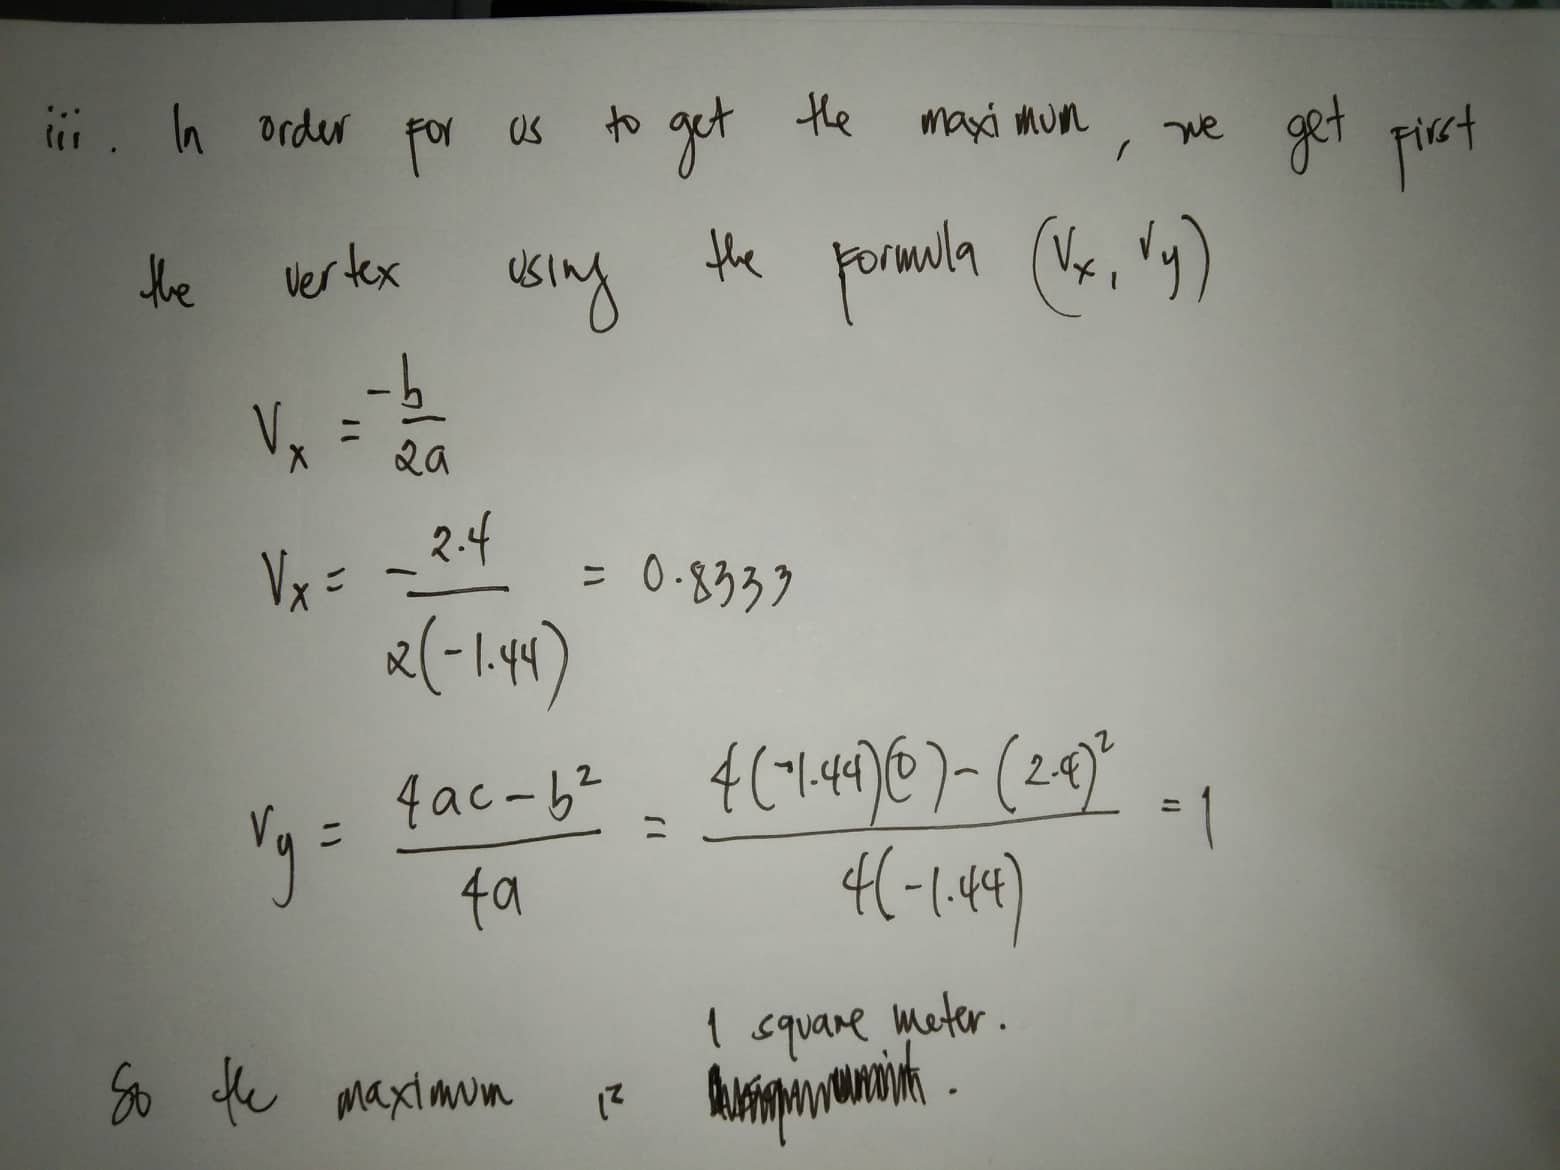 iii. In order for us to get the maximum, we get first
the vertex using the formula (Vx, Vy)
Vx = -b/2a
Vx = - 2.4/2(-1.44) = 0.8333
Vy = 4ac-b²/4a = 4(-1.44)(0)-(2.4)²/4(-1.44) = 1
1 square meter.
So the maximum is